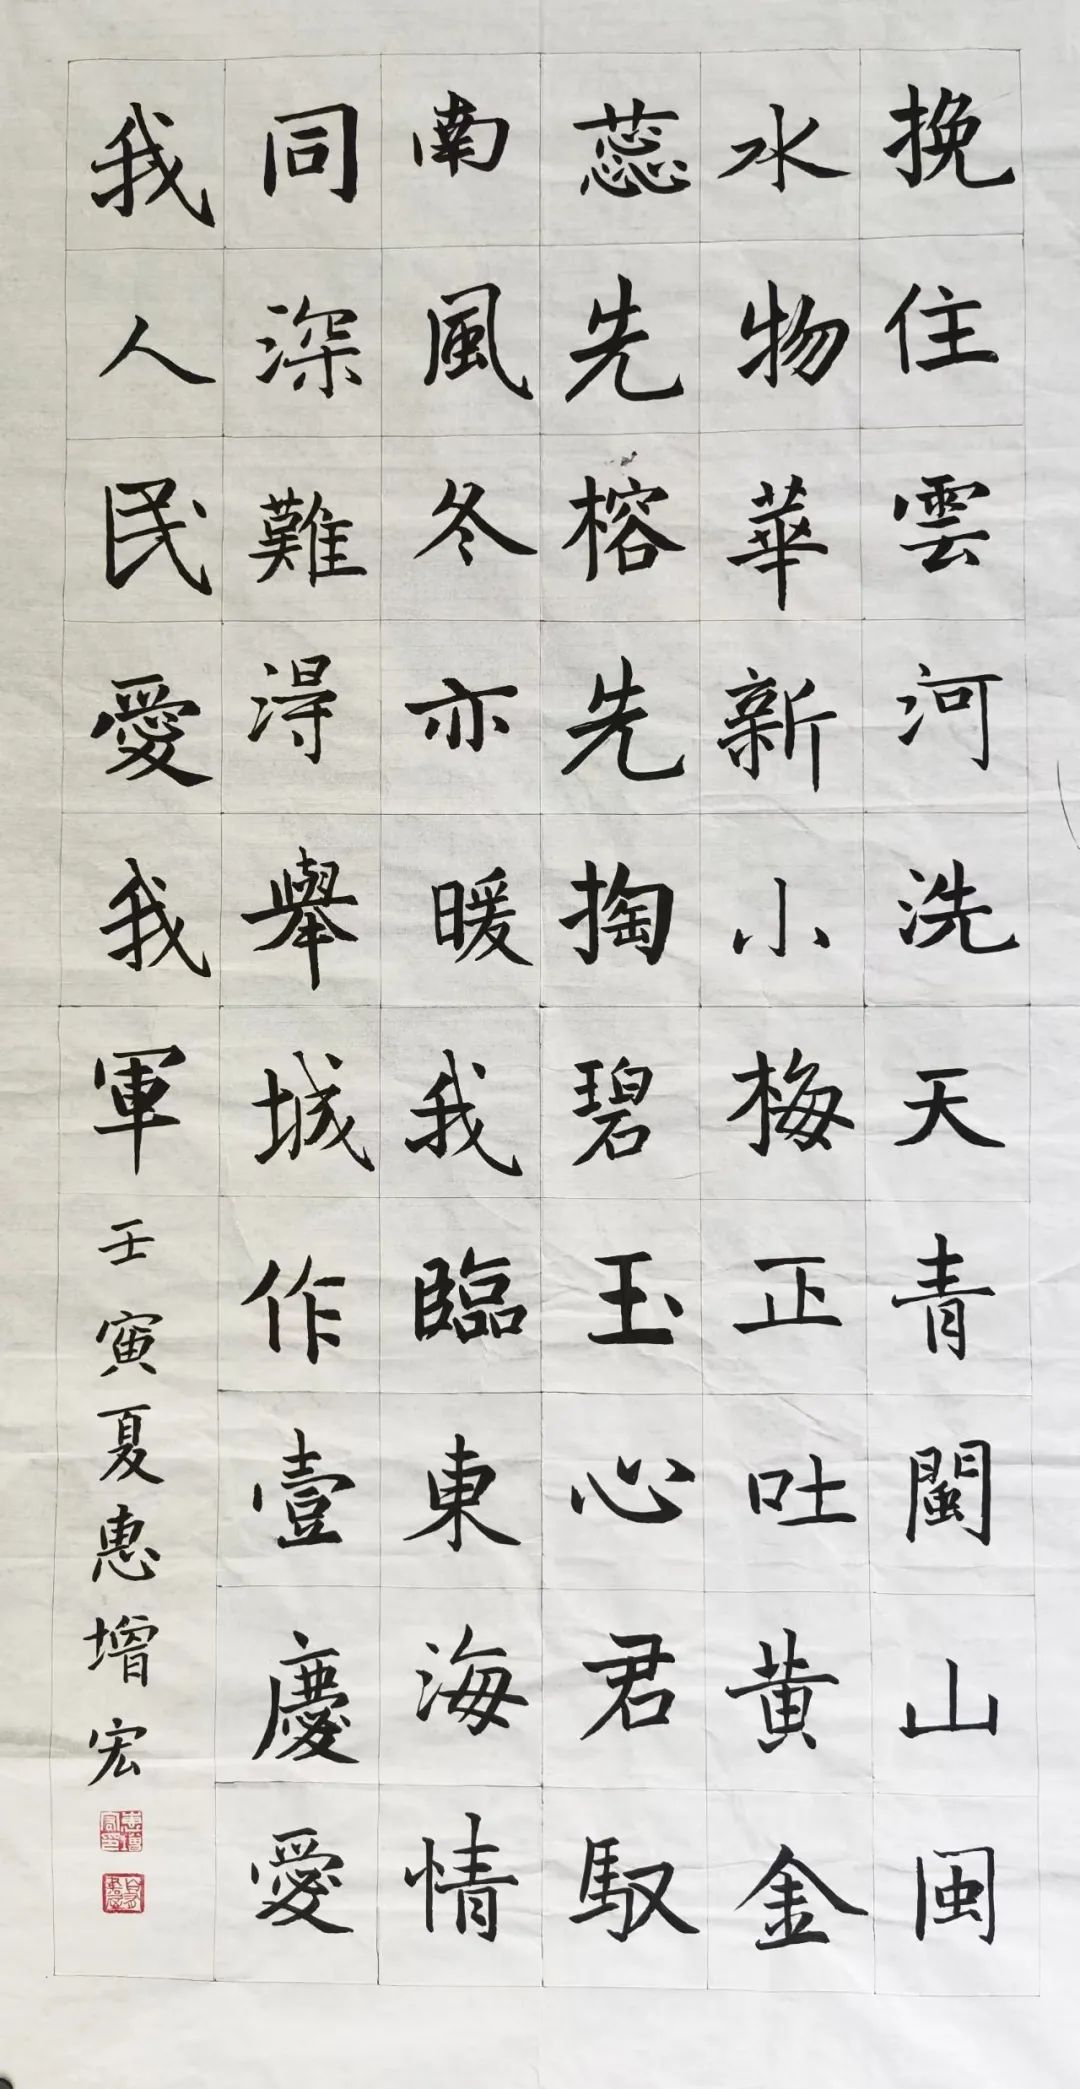 挽住雲河洗天青閩山闽
水物華新小梅正吐黄金
蕊先榕先掏碧玉心君馭
南風冬亦暖我臨東海情
同深難淂舉城作壹慶愛
我人民愛我軍
壬寅夏惠增宏